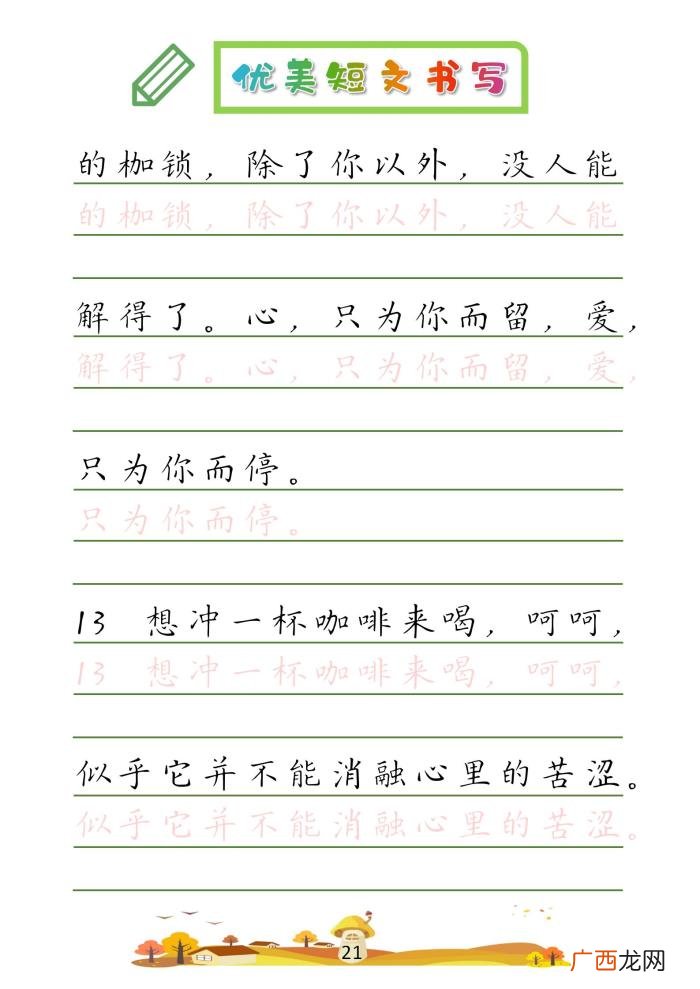 优美短文书写
的枷锁，除了你以外，没人能
的枷锁，除了你以外，没人能
解得了。心，只为你而留，爱，
解得了。心，只为你而留，爱，
只为你而停。
只为你而停。
13 想冲一杯咖啡来喝，呵呵，
13 想冲一杯咖啡来喝，呵呵，
似乎它并不能消融心里的苦涩。
似乎它并不能消融心里的苦涩。
21
广西龙网